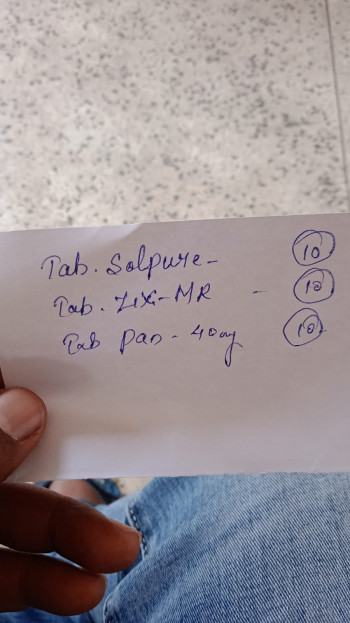 Tab. Solpure - 10
Tab. Zixi-MR - 10
Tab Pan - 40mg 10